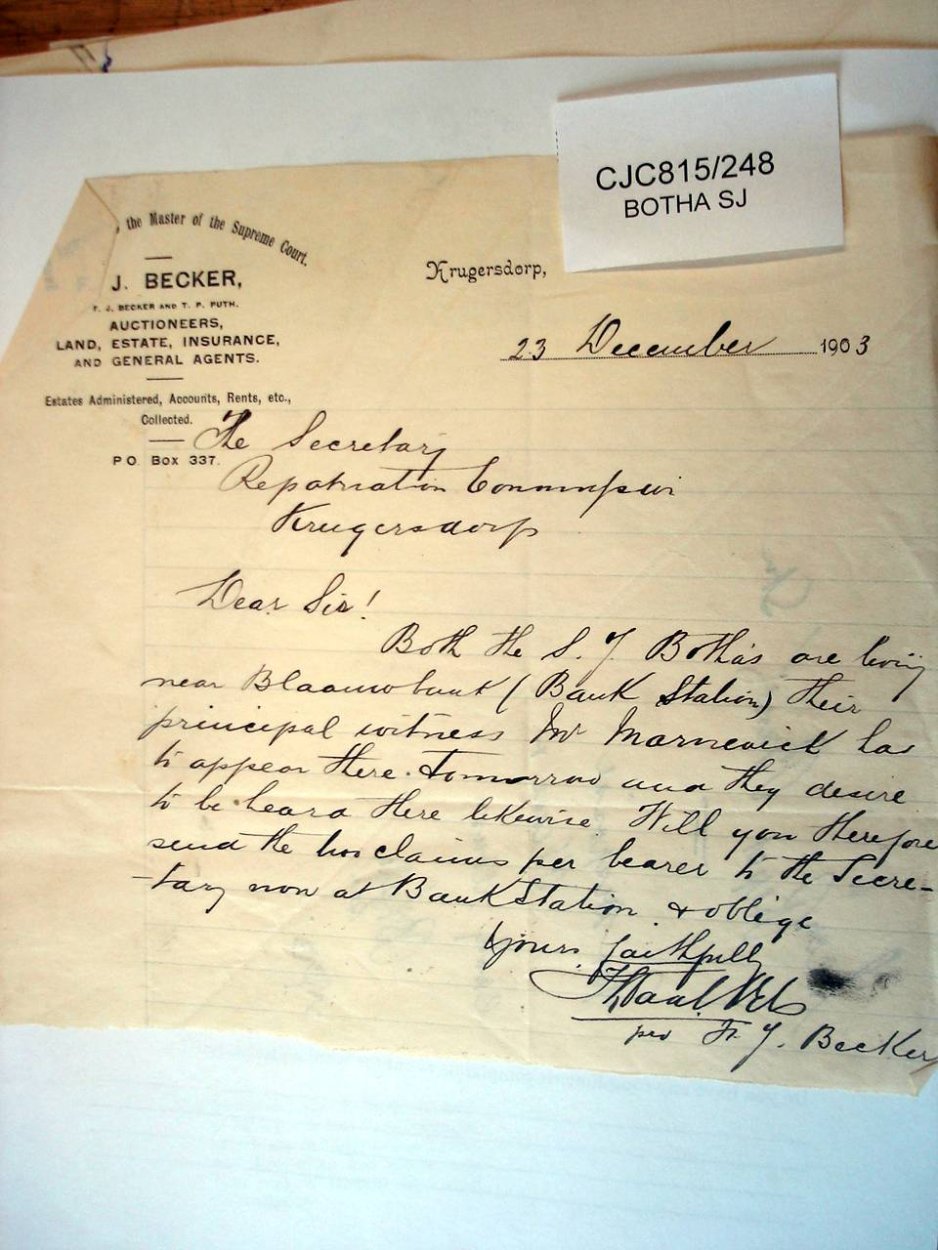 CJC815/248
BOTHA SJ
the Master of the Supreme Court.
J. BECKER,
F. J. BECKER AND T. P. PUTH.
AUCTIONEERS,
LAND, ESTATE, INSURANCE,
AND GENERAL AGENTS.
Estates Administered, Accounts, Rents, etc.,
Collected.
P.O. Box 337.
Krugersdorp,
23 December 1903
The Secretary
Repatriation Commission
Krugersdorp
Dear Sir!
Both the S. J. Botha's are living
near Blaauwbank (Bank Station) their
principal witness Mr Marnewick has
to appear there tomorrow and they desire
to be heard there likewise. Will you therefore
send the two claims per bearer to the Secre-
-tary now at Bank Station & oblige
Yours faithfully
per F. J. Becker